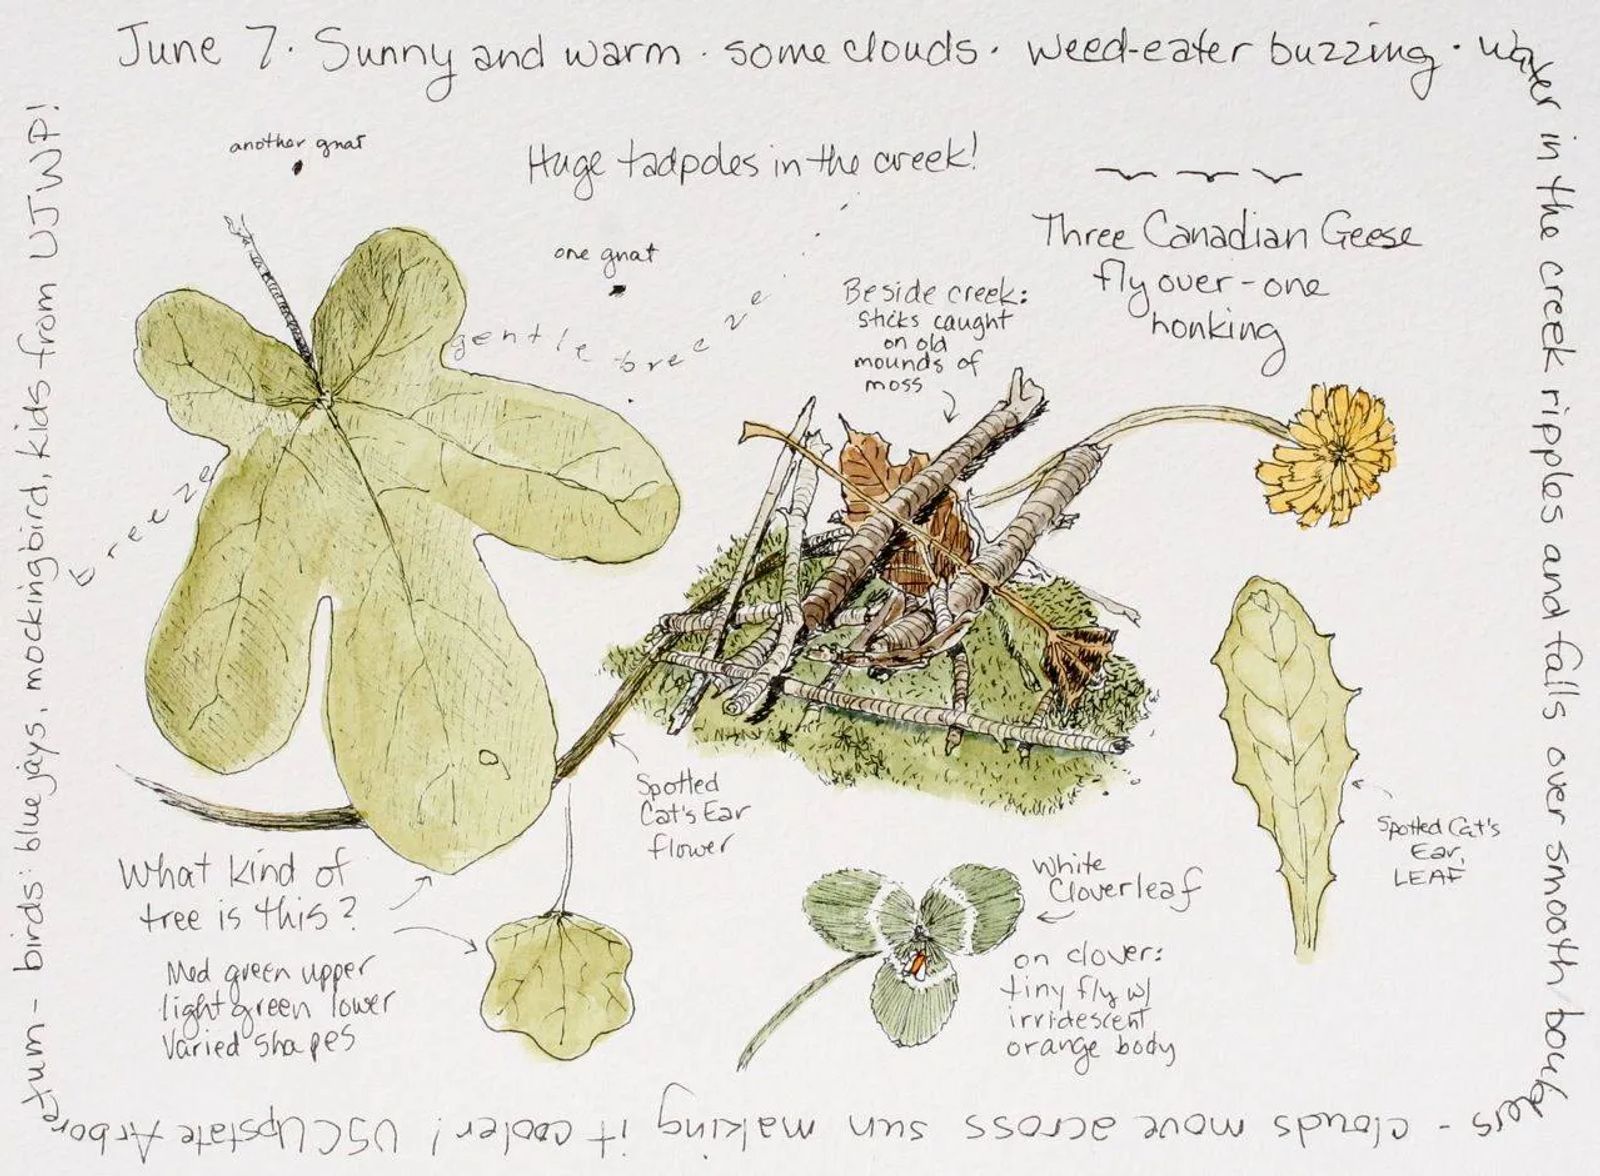 June 7. Sunny and warm. some clouds. weed-eater buzzing. water in the creek ripples and falls over smooth boulders - clouds move across sun making it cooler! USCUpstate Arboretum - birds: blue jays, mockingbird, kids from UJWP!
another gnat
Huge tadpoles in the creek!
one gnat
gentle breeze
Three Canadian Geese
fly over - one
honking
Beside creek:
sticks caught
on old
mounds of
moss
reeze
Spotted
Cat's Ear
flower
Spotted Cat's
Ear,
LEAF
What kind of
tree is this?
Med green upper
light green lower
Varied shapes
White
Cloverleaf
on clover:
tiny fly w/
irridescent
orange body